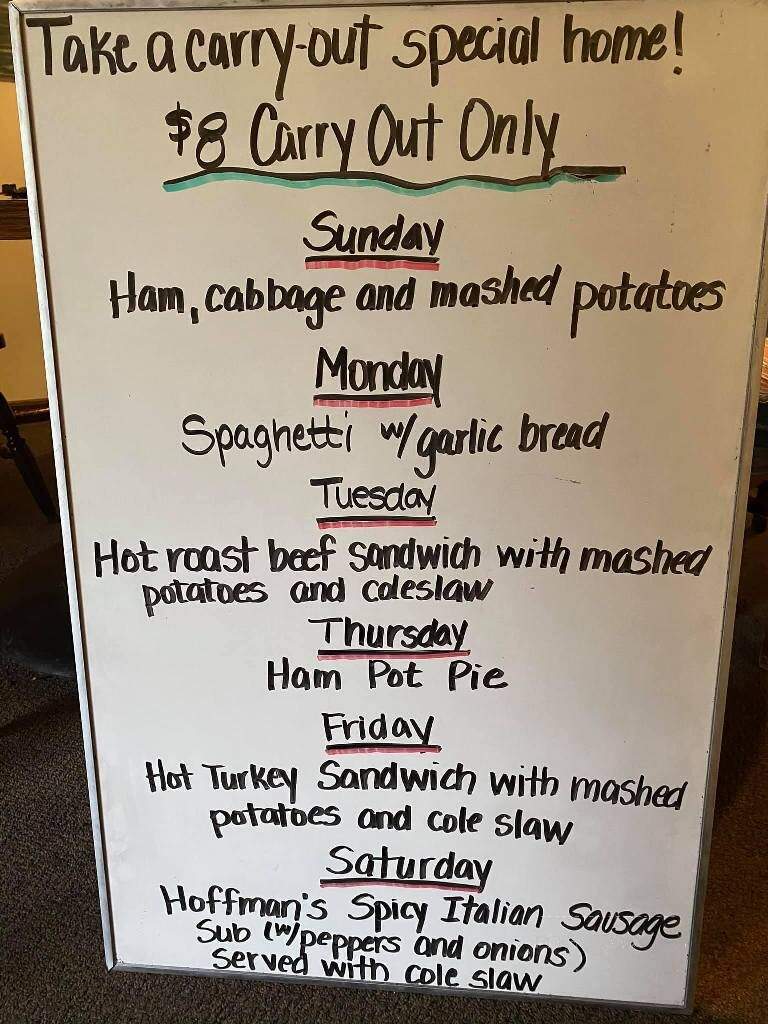 Take a carry-out special home!
$8 Carry Out Only
Sunday
Ham, cabbage and mashed potatoes
Monday
Spaghetti w/garlic bread
Tuesday
Hot roast beef sandwich with mashed
potatoes and coleslaw
Thursday
Ham Pot Pie
Friday
Hot Turkey Sandwich with mashed
potatoes and cole slaw
Saturday
Hoffman's Spicy Italian Sausage
Sub (w/peppers and onions)
Served with cole slaw